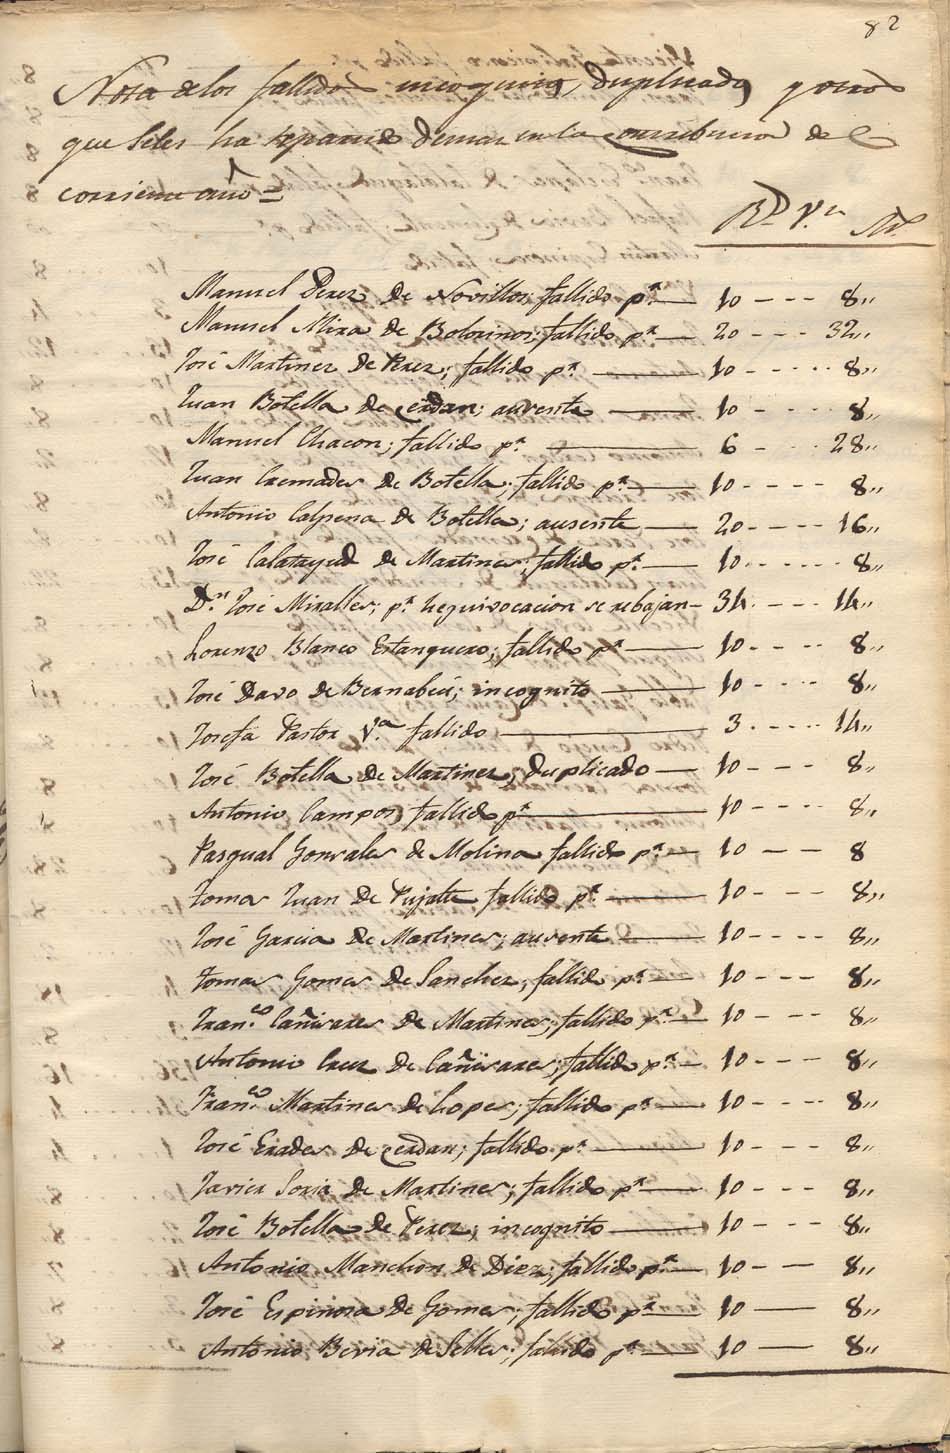 82
Nota de los fallidos incognitos, duplicados y otros
que seles ha repartido demas en la contribucion de
corriente año =
R.s V.n M.s
Manuel Perez de Novillos; fallido p.r — 10 - - - 8,,
Manuel Mira de Bolorinos; fallido p.r — 20 - - - 32,,
José Martinez de Perez; fallido p.r — 10 - - - - 8,,
Juan Botella de Cerdan; ausente — 10 - - - 8,,
Manuel Chacon; fallido p.r — 6 - - - 28,,
Juan Cremades de Botella; fallido p.r — 10 - - - - 8,,
Antonio Calpena de Botella; ausente — 20 - - - - 16,,
José Calatayud de Martines; fallido p.r — 10 - - - - 8,,
D.n José Miralles; p.r hequivocacion se rebajan - 34 - - - 14,,
Lorenzo Blanco Estanquero; fallido p.r — 10 - - - 8,,
José Davo de Bernabeú; incognito — 10 - - - 8,,
Josefa Pastor V.a fallido — 3 - - - - 14,,
José Botella de Martinez; duplicado — 10 - - - 8,,
Antonio Campos fallido p.r — 10 - - - - 8,,
Pasqual Gonsales de Molina fallido p.r — 10 — — 8
Tomas Juan de Pujalte fallido p.r — 10 - - - 8,,
José Garcia de Martines; ausente — 10 - - - - 8,,
Tomas Gomes de Sanchez; fallido p.r — 10 - - - 8,,
Fran.co Cañisares de Martines; fallido p.r — 10 - - - 8,,
Antonio Cruz de Cañisares; fallido p.r — 10 - - - 8,,
Fran.co Martines de Lopes; fallido p.r — 10 - - - - 8,,
José Erades de Cerdan; fallido p.r — 10 - - - 8,,
Javier Soria de Martines; fallido p.r — 10 - - - 8,,
José Botella de Perez; incognito — 10 - - - 8,,
Antonio Manchon de Diez; fallido p.r — 10 - — 8,,
José Espinosa de Gomes; fallido p.r — 10 — 8,,
Antonio Bevia de Selles; fallido p.r — 10 — 8,,